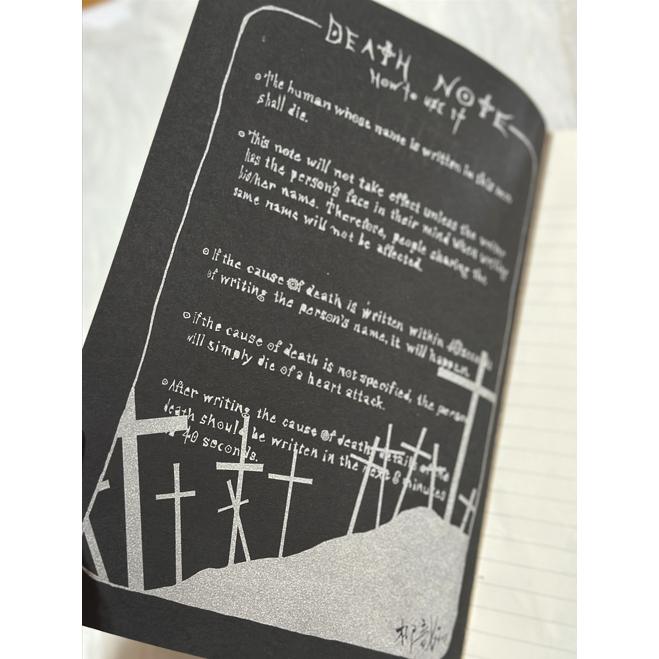 DEATH NOTE
How to use it
The human whose name is written in this note
shall die.
This note will not take effect unless the writer
has the person's face in their mind when writing
his/her name. Therefore, people sharing the
same name will not be affected.
If the cause of death is written within 40 seconds
of writing the person's name, it will happen.
if the cause of death is not specified, the person
will simply die of a heart attack.
After writing the cause of death, details of the
death should be written in the next 6 minutes
40 seconds.